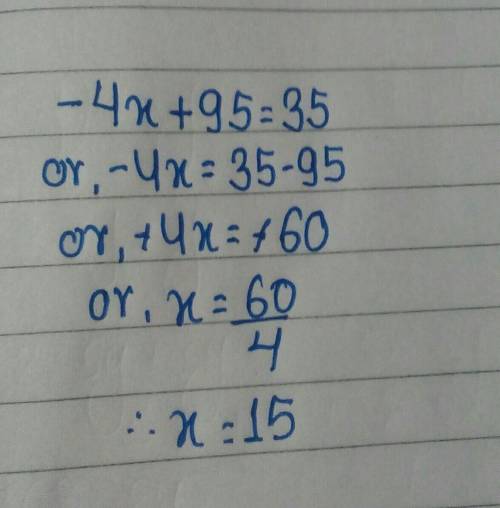 -4x+95=35
or, -4x=35-95
or, +4x=+60
or, x=60/4
∴ x=15